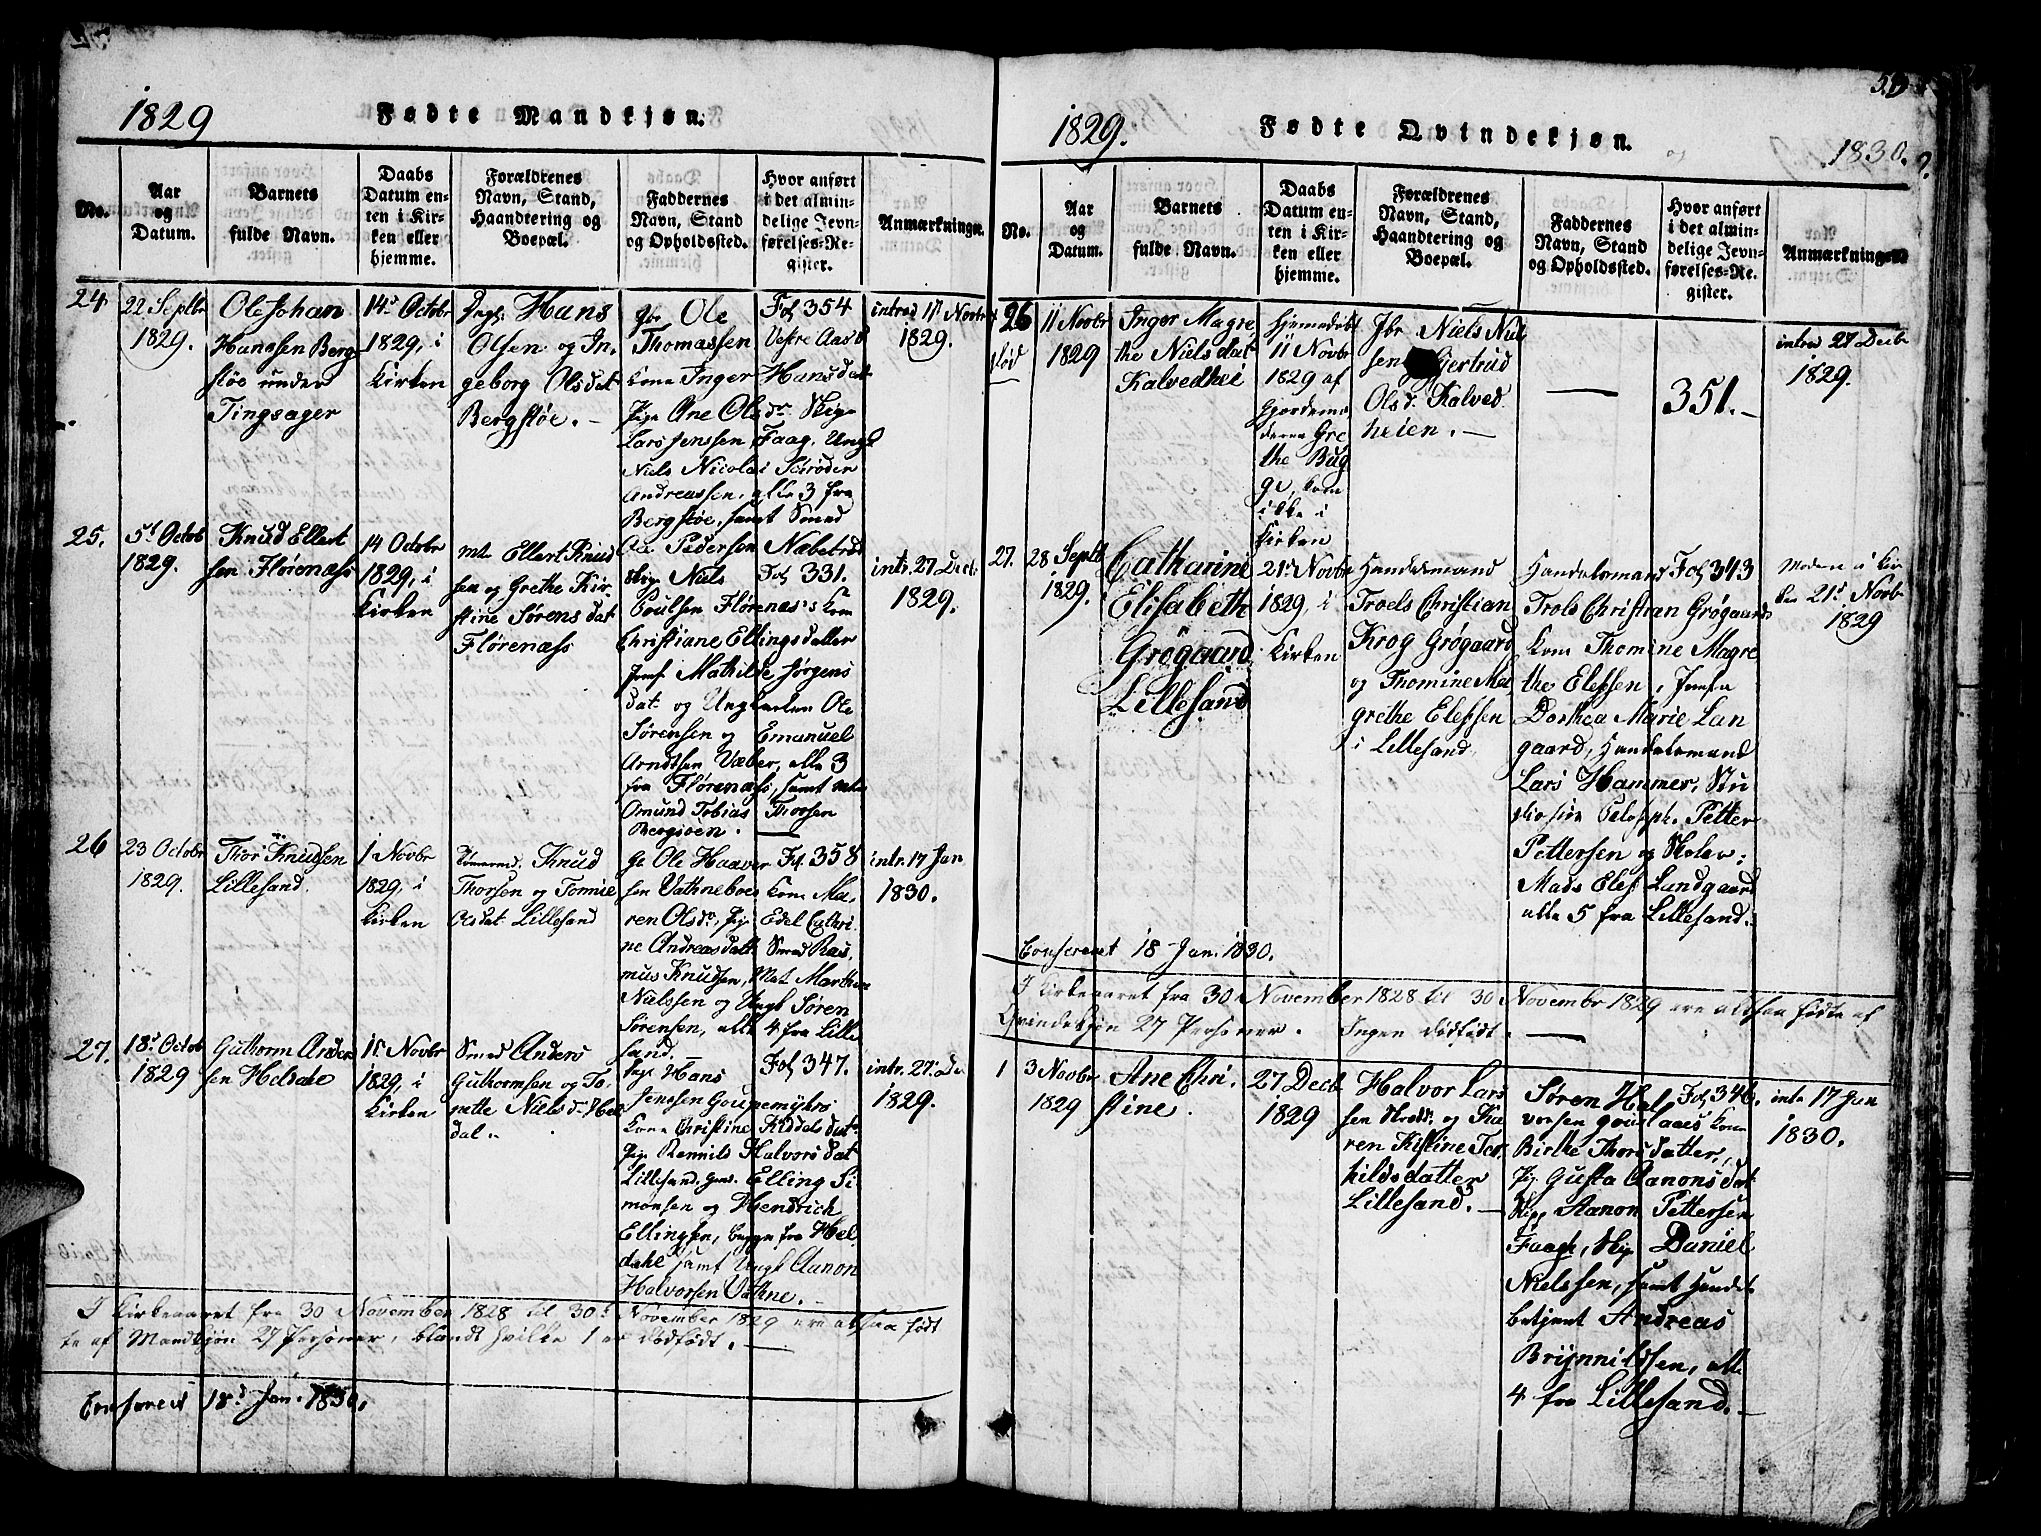 1829
Fødte Mandkjøn.
No.
Aar
og
Datum.
Barnets
fulde Navn.
Daabs
Datum en-
ten i Kir-
ken eller
hjemme.
Forældrenes
Navn, Stand,
Haandtering og
Boepæl.
Faddernes
Navn, Stand
og Opholdssted.
Hvor anført
i det almin-
delige Jevn-
førelses-Re-
gister.
Anmærkninge
24
22 Septbr
1829.
Ole Johan
Hanssen Berg
støe under
Tingsager
14d Octobr
1829, i
Kirken
Hans
Olsen og In,
geborg Olsdat
Bergstøe. -
Ole
Thomassen
Kone Inger Hansdat
Pige Ane Olsdr. Skip
Lars Jenssen Faag, Ungk
Niels Nicolai Schrøder
Andreassen, alle 3 fra
Bergstøe, samt Smed
Ole Pedersen Næbetrød
Fol 354
Vestre
introd 17 Novbr
1829.
25.
5t Octob
1829.
Knud Ellert
sen Flørenæss
14 Octobr
1829, i
Kirken
mt Ellert Knud
sen og Grethe Kir-
stine Sørensdat
Flørenæss
Skip Niels
Poulsen Flørenæs's Kone
Christiane Ellingsdatter
Jomf Mathilde Jørgens
dat og Ungkarlen Ole
Sørensen og Emanuel
Arndtsen Væber, alle 3
fra Flørenæss, samt
Omund Tobias Thorsen
Fol 331.
intr. 27 Dec:
1829.
26
23 Octobr
1829.
Thor Knudsen
Lillesand.
1 Novbr
1829, i
Kirken
Knud
Thorsen og Tomine
Olsdat Lillesand
Ole Haaver
sen Vathneboe Kone Ma-
ren Olsdr, Pig Edel Cathri
ne Andreasdatt Smed Ras,
mus Knudsen, Mat Marthin
Nielssen og Ungk Søren
Sørensen, alle 4 fra Lille
sand.
Fol 358
intr. 17 Jan
1830.
27.
18d Octob
1829
Guthorm Anders
sen Heldale
1t Novbr
1829, i
Kirken
Smed Anders
Guthormsen og To-
nette Nielsd. Hel
dal. -
Hans
Jenssen Goupemyhrs
Kone Christine Kiddelsdatr
Pige Rennild Halvorsdat
Lillesand, Elling Si
monsen og Hendrich
Ellingsen, begge fra Hel,
dahl samt Ungk Aanon
Halvorsen Vathne.
Fol 347.
intr. 27. De
1829.
I Kirkeaaret fra 30 November 1828 til 30d November 1829 ere altsaa født
te af Mandkjøn 27 Personer, blandt hvilke 1 er dødfødt. -
Confereret 18d Jan. 1830.
1829.
Fødte Qvindekjøn.
og
1830.
No.
Aar
og
Datum.
Barnets
fulde Navn.
Daabs
Datum en-
ten i Kir-
ken eller
hjemme.
Forældrenes
Navn, Stand,
Haandtering og
Boepæl.
Faddernes
Navn, Stand
og Opholdssted.
Hvor anført
i det almin-
delige Jevn-
førelses-Re-
gister.
Anmærkningen
26
død
11 Novbr
1829
Inger Magre
the Nielsdat
Kalvedhei
Hjemmedøbt
11 Novbr
1829 af
Gjordemo,
deren Gre
the Bug
ge, kom
ikke i
Kirken
Niels Niel
sen Gjertrud
Olsd. Kalved
heien. -
351. -
intro 27 Decbr
1829.
27.
28 Septb
1829.
Catharine
Elisabeth
Grøgaard
Lillesand
21d Novbr
1829, i
Kirken
Handelsmand
Troels Christian
Krog Grøgaard
og Thomine Ma
grethe Elefsen
i Lillesand
Handelsmand
Trols Christian Grøgaards
Kone Thomine Magre
the Elefsen, Jomfr
Dorthea Marie Lun
gaard, Handelsmand
Lars Hammer, Stu
diosus Petter
Pettersen og Skolev:
Mads Elef Lundgaard
alle 5 fra Lillesand.
Fol 343
Moden i Kir
ken 21d Novbr
1829
Confereret 18 Jan. 1830.
I Kirkeaaret fra 30 November 1828 til 30 Novembr 1829 ere altsaa fødte af
Qvindekjøn 27 Personer. Ingen dødfødt. -
1
3 Novbr
1829
Ane Chri.
stine.
27 Decb
1829
Halvor Lars
sen og Ka
ren Kistine Ter,
hildsdatter
Lillesand. -
Søren Hal
vorsen Kone
Birthe Thorsdatter,
Pig Gusta Aanonsdat
Skip Aanon Pettersen
Faage, Skip Daniel
Nielssen, samt Handel
betjent Andreas
Brynnildsen, alle
4 fra Lillesand. -
Fol 346.
intr 17 Jan
1830.